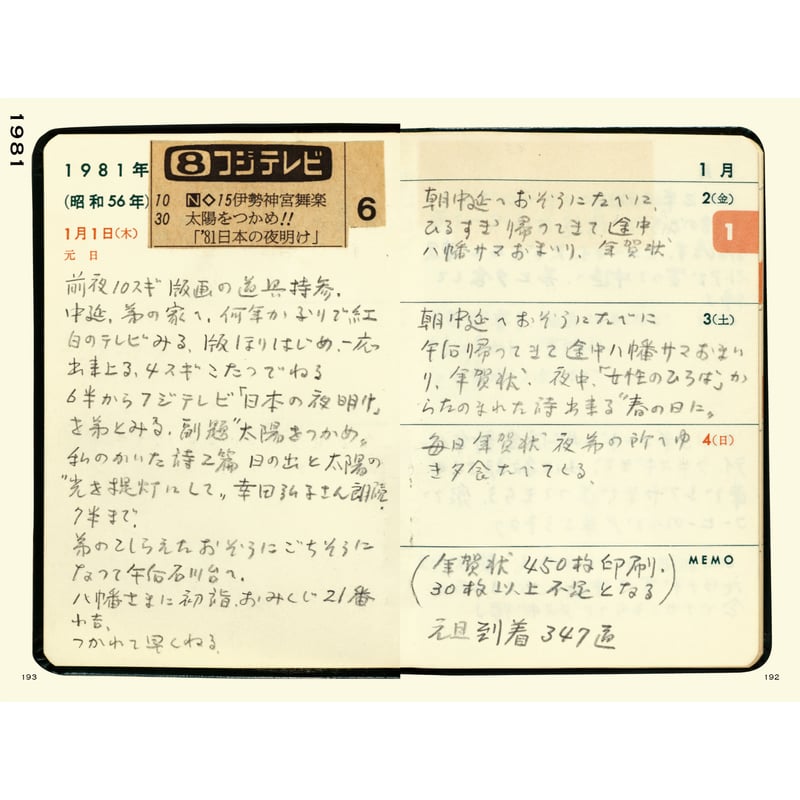 1981
1981年
(昭和56年)
1月1日(木)
元日
8フジテレビ
10 N◇15伊勢神宮舞楽
30 太陽をつかめ!!
「'81日本の夜明け」
6
前夜10スギ版画の道具持参、
中延、弟の家へ、何年かぶりで紅
白のテレビみる、版ほりはじめ、一応
出来上る、4スギこたつでねる
6半からフジテレビ「日本の夜明け」
を弟とみる、副題"太陽をつかめ"
私のかいた詩2篇 日の出と太陽の
"光を提灯にして" 幸田弘子さん朗読、
7半まで、
弟のこしらえたおぞうにごちそうに
なって午后石川台へ、
八幡さまに初詣、おみくじ21番
小吉、
つかれて早くねる、
193
1月
2(金)
朝中延へおぞうにたべに、
ひるすぎ帰ってきて途中
八幡サマおまいり、年賀状
1
3(土)
朝中延へおぞうにたべに
午后帰ってきて途中八幡サマおまい
り、年賀状、夜中、「女性のひろば」か
らたのまれた詩出来る"春の日に"
4(日)
毎日年賀状 夜弟の所へゆ
き夕食たべてくる、
MEMO
(年賀状 450枚印刷、
30枚以上不足となる)
元旦到着 347通
192